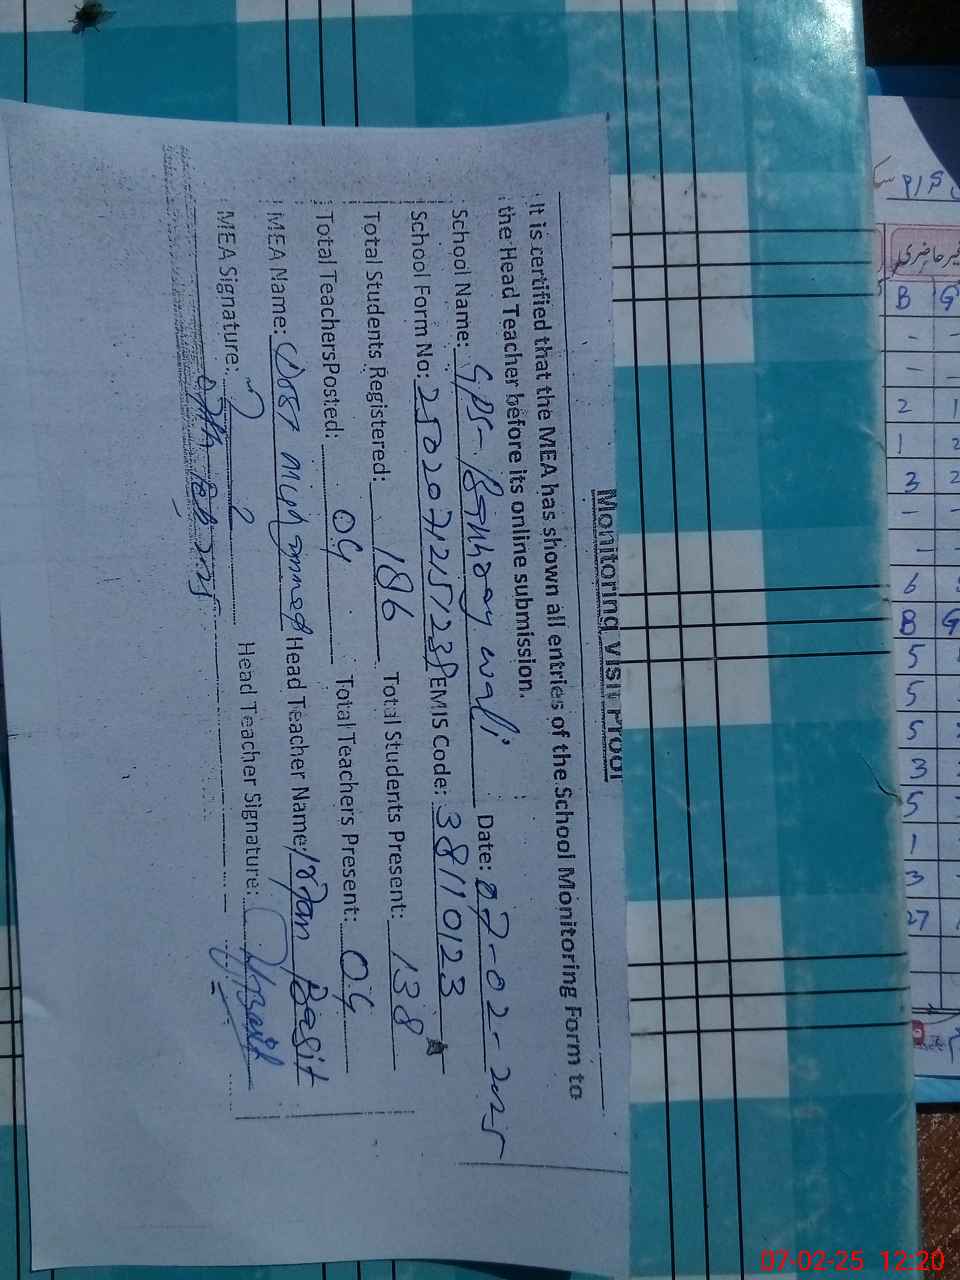 Monitoring Visit Proof
It is certified that the MEA has shown all entries of the School Monitoring Form to
the Head Teacher before its online submission.
School Name: GPS- wali Date: 07-02-2025
School Form No: 25020712151238 EMIS Code: 38110123
Total Students Registered: 186 Total Students Present: 138
Total TeachersPosted: 04 Total Teachers Present: 04
MEA Name: Dost Muhammad Head Teacher Name: Basit
MEA Signature: Head Teacher Signature: Basit
07th Feb 2025
غیر حاضری
B G
- -
- 1
2 1
1 2
3 2
-
-
6
B G
5
5
5
3
5
1
3
27
07-02-25 12:20